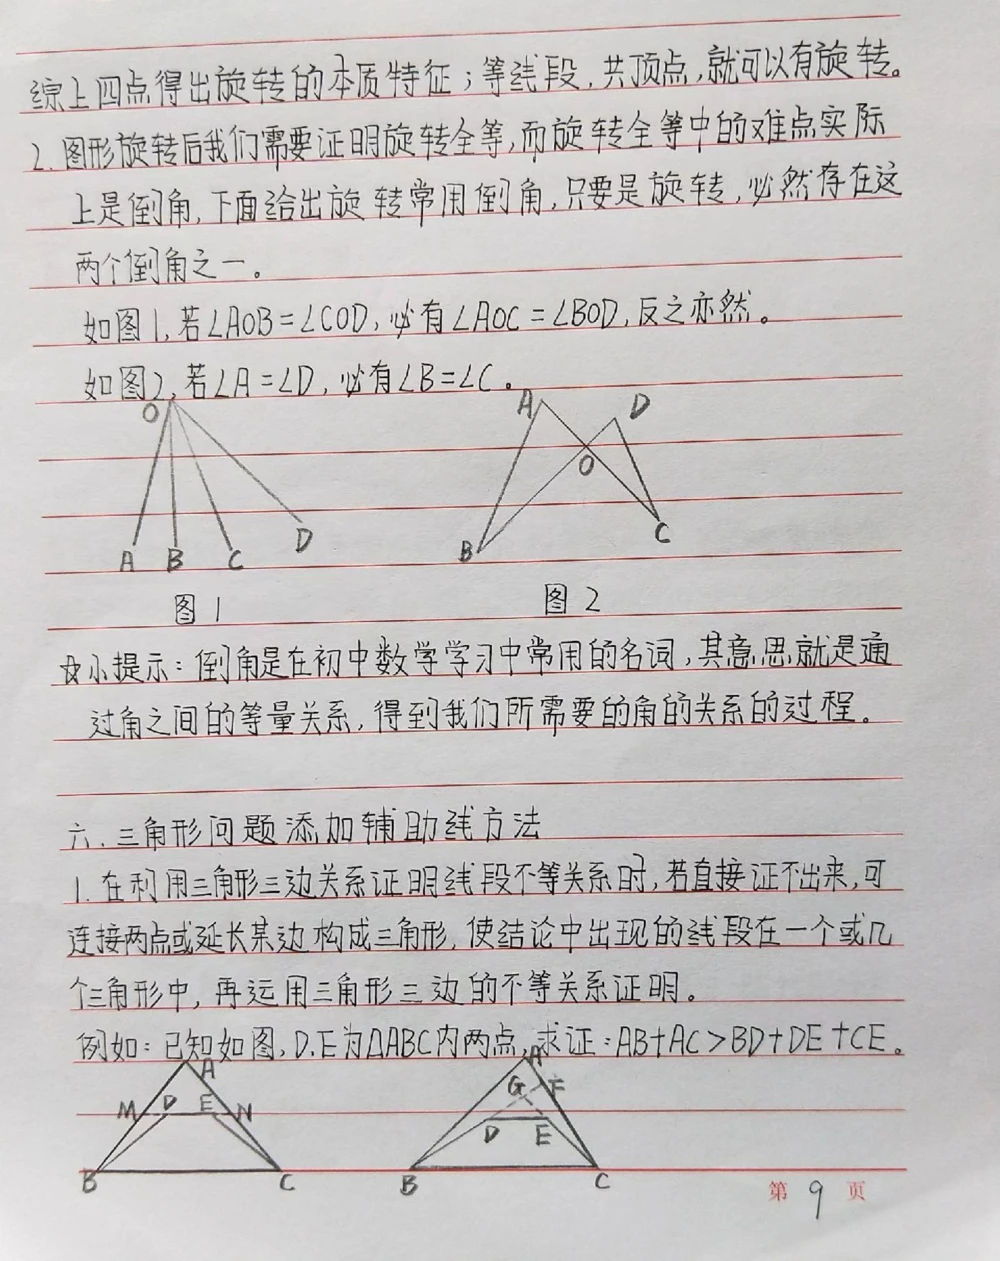 综上四点得出旋转的本质特征；等线段，共顶点，就可以有旋转。
2.图形旋转后我们需要证明旋转全等，而旋转全等中的难点实际
上是倒角，下面给出旋转常用倒角，只要是旋转，必然存在这
两个倒角之一。
如图1,若∠AOB=∠COD,必有∠AOC=∠BOD,反之亦然。
如图2,若∠A=∠D,必有∠B=∠C。
O
A B C D
图1
A D
O
B C
图2
☆小提示：倒角是在初中数学学习中常用的名词，其意思就是通
过角之间的等量关系，得到我们所需要的角的关系的过程。
六.三角形问题添加辅助线方法
1.在利用三角形三边关系证明线段不等关系时，若直接证不出来，可
连接两点或延长某边构成三角形，使结论中出现的线段在一个或几
个三角形中，再运用三角形三边的不等关系证明。
例如：已知如图，D.E为△ABC内两点，求证：AB+AC>BD+DE+CE。
A
M D E N
B C
A
G F
D E
B C
第9页